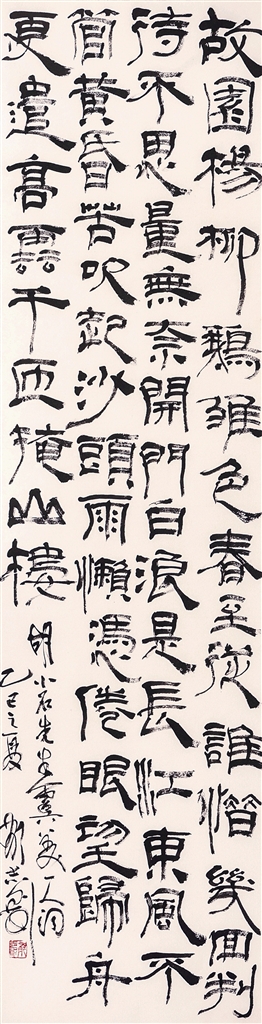 故園楊柳鵝雛色春至從誰惜幾回判
待不思量無奈開門白浪是長江東風不
管黃昏苦吹起沙頭雨懶憑倦眼望歸舟
更遣高雲千匝掩山樓
胡小石先生虞美人詞
乙巳之夏